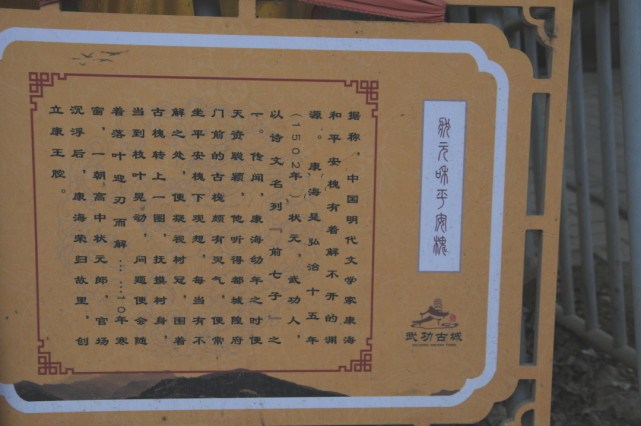 状元和平安槐
据称，中国明代文学家康海
和平安槐有着解不开的渊
源。康海是弘治十五年
（1502年）状元，武功人，
以诗文名列『前七子』之
一。传闻，康海幼年之时便
天资聪颖，他听得都城隍府
门前的古槐颇有灵气，便常
坐平安槐下观想，每当有不
解之处，便凝视树冠，围着
古槐转上一圈，抚摸树身，
当到枝叶晃动，问题便会随
着落叶迎刃而解……10年寒
窗，一朝高中状元郎，官场
沉浮后，康海荣归故里，创
立康王腔。
武功古城